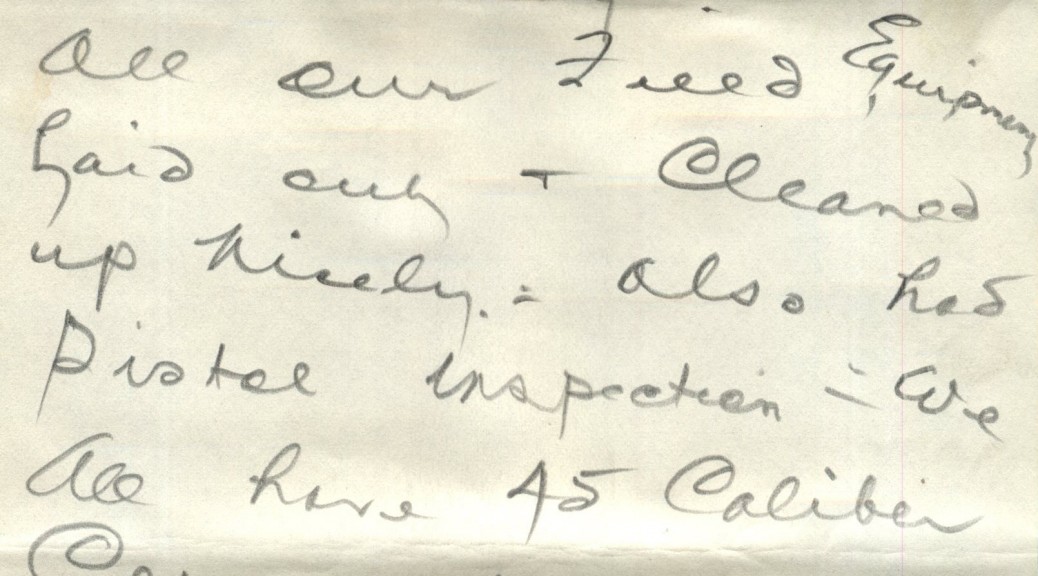 all our Field Equipment
Laid out + Cleaned
up Nicely. = also had
Pistol inspection = We
All have 45 Caliber